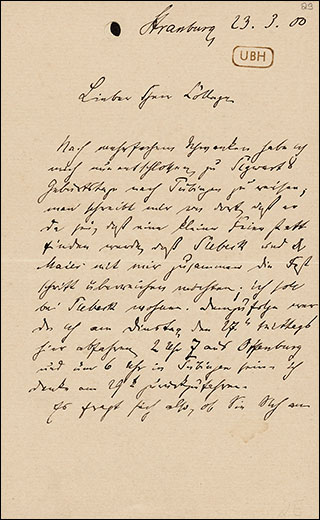 23
Strassburg 23. 3. 00
UBH
Lieber Herr College
Nach mehrfachem Schwanken habe ich
mich nun entschlossen, zu Sigwart's
Geburtstage nach Tübingen zu reisen;
man schreibt mir von dort, daß er
da sei, daß eine kleine Feier statt
finden werde, daß Siebeck und H.
Maier mit mir zusammen die Fest
schrift überreichen möchten; ich soll
bei Siebeck wohnen. Demzufolge werde
ich am Dienstag den 27t Mittags
hier abfahren, 2 Uhr 7 aus Offenburg
und um 6 Uhr in Tübingen sein. Ich
denke am 29t zurückzufahren.
Es fragt sich also, ob Sie sich an